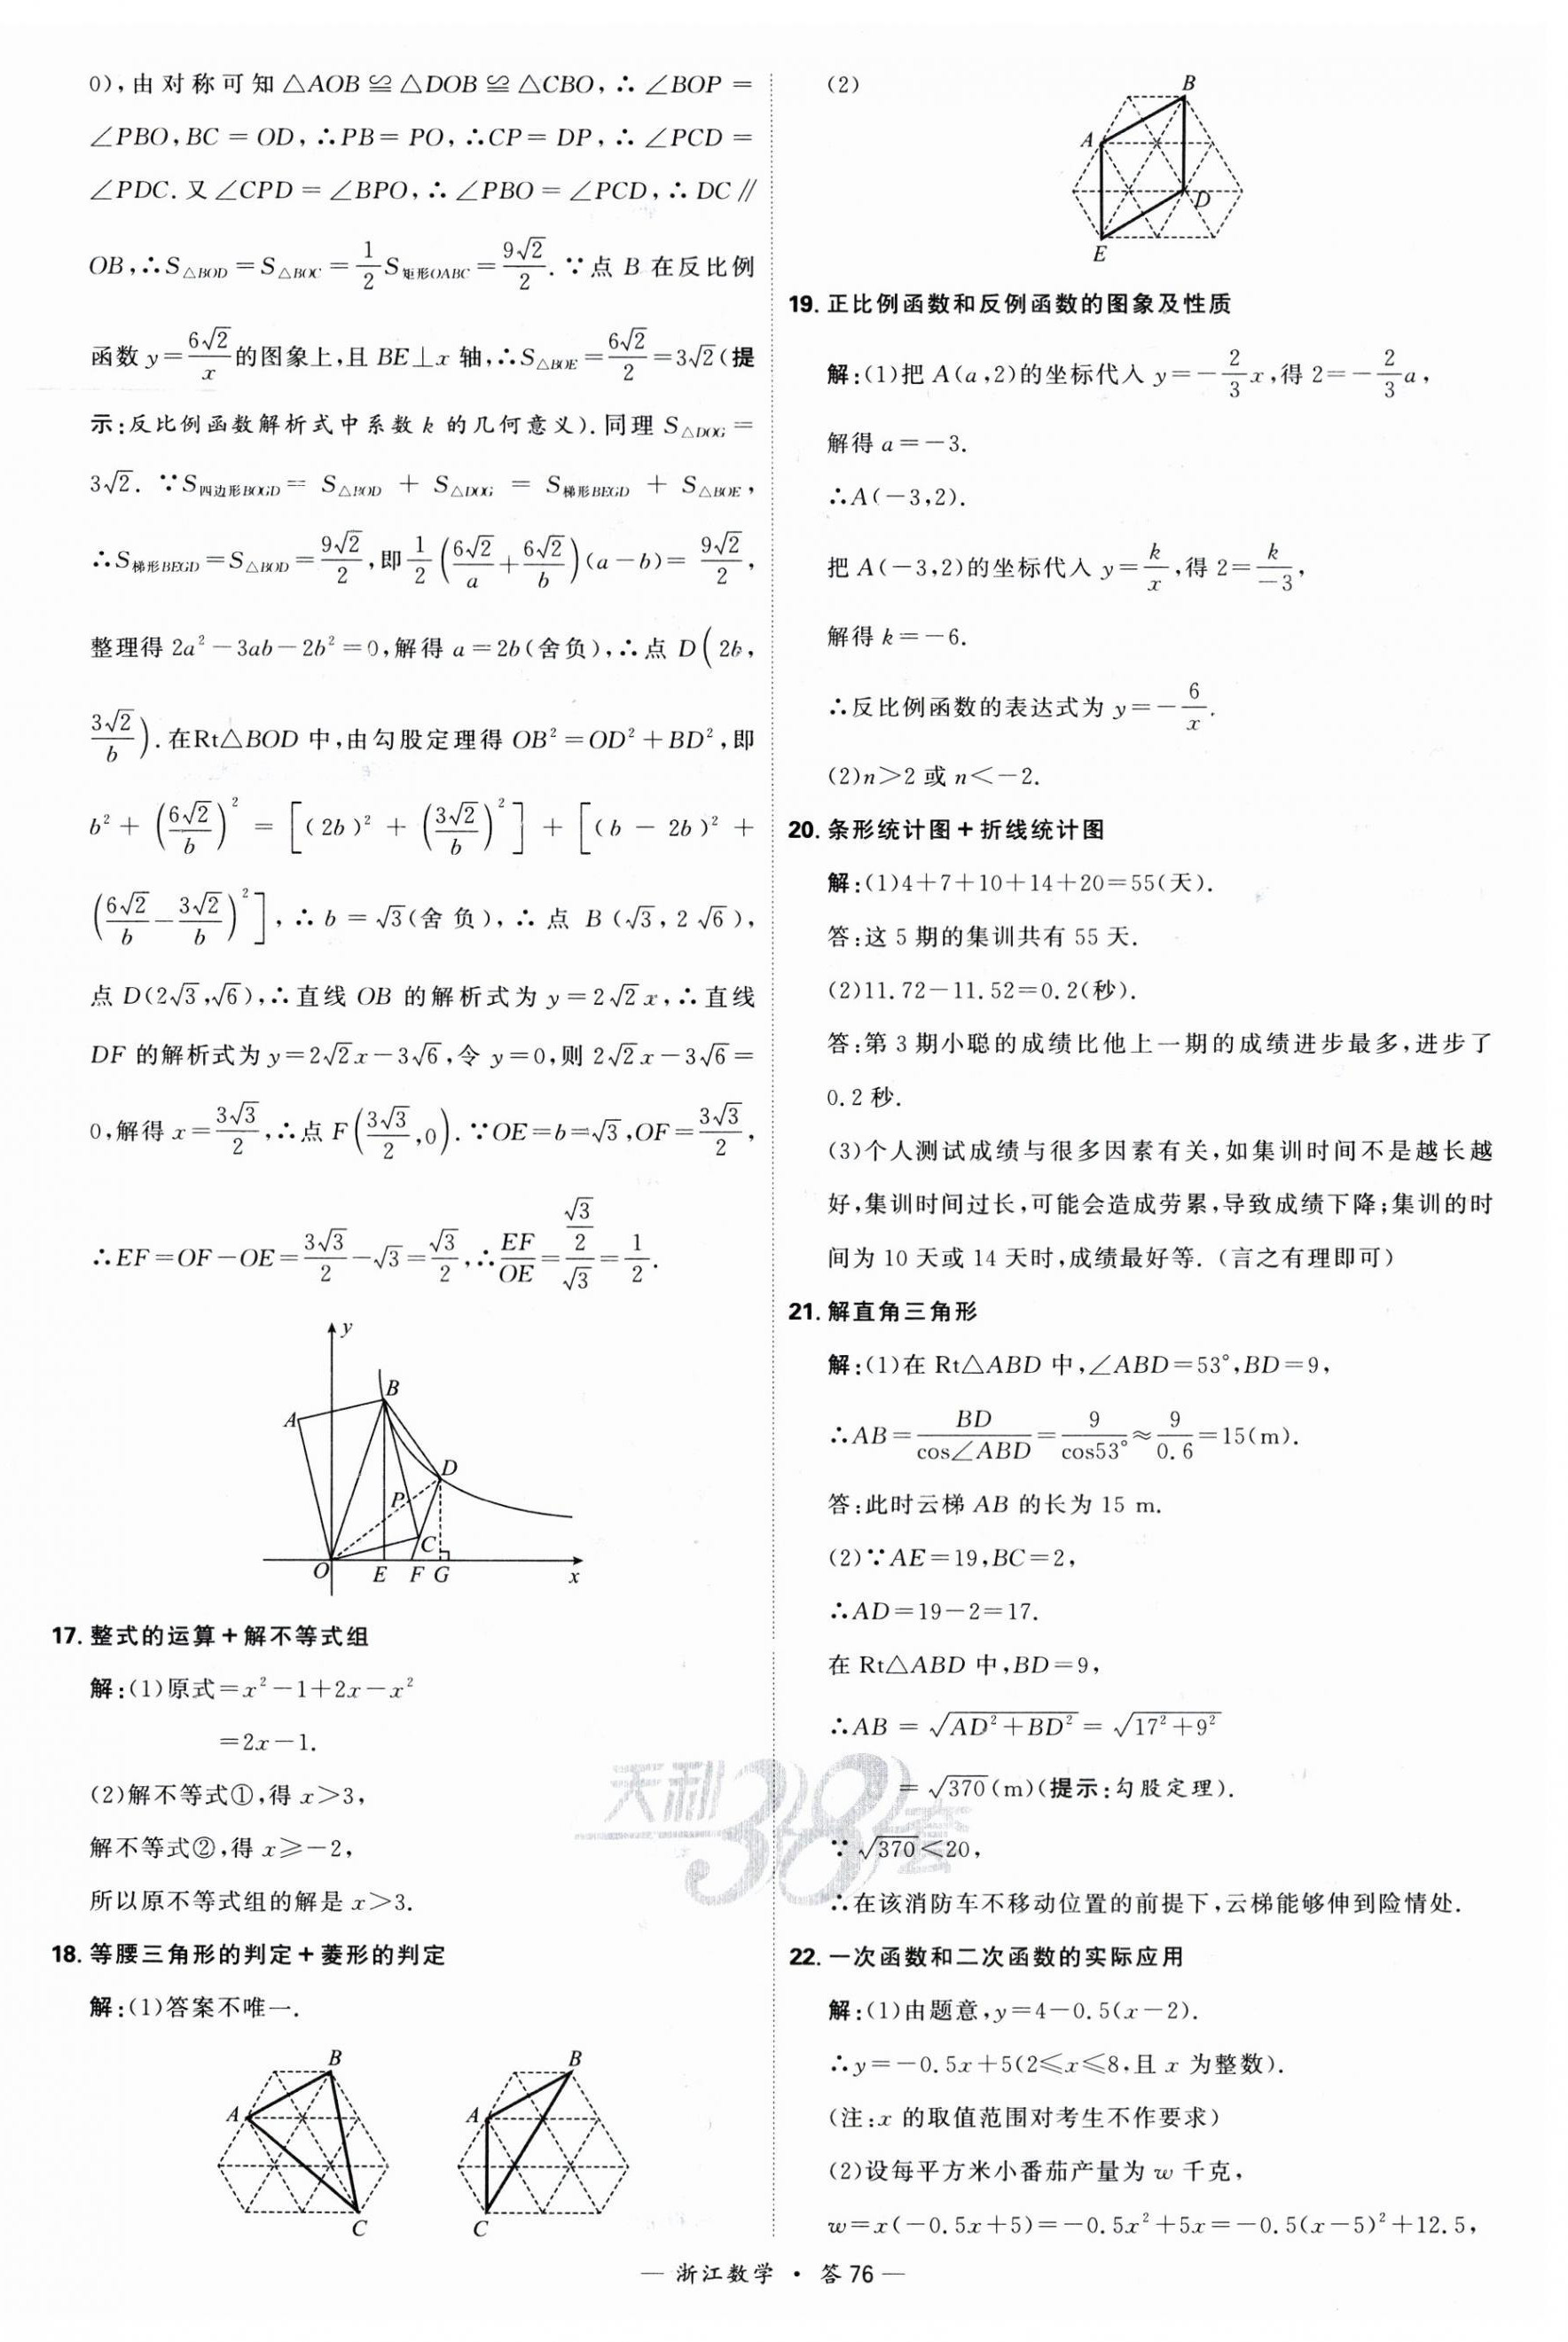 0),由对称可知△AOB≌△DOB≌△CBO,∴∠BOP=
∠PBO,BC=OD,∴PB=PO,∴CP=DP,∴∠PCD=
∠PDC.又∠CPD=∠BPO,∴∠PBO=∠PCD,∴DC∥
OB,∴S△BOD=S△BOC=1/2 S矩形OABC=9√2/2.∵点B在反比例
函数y=6√2/x的图象上,且BE⊥x轴,∴S△BOE=6√2/2=3√2(提
示:反比例函数解析式中系数k的几何意义).同理S△DOG=
3√2.∵S四边形BOGD=S△BOD+S△DOG=S梯形BEGD+S△BOE,
∴S梯形BEGD=S△BOD=9√2/2,即1/2(6√2/a+6√2/b)(a-b)=9√2/2,
整理得2a²-3ab-2b²=0,解得a=2b(舍负),∴点D(2b,
3√2/b).在Rt△BOD中,由勾股定理得OB²=OD²+BD²,即
b²+(6√2/b)²=[(2b)²+(3√2/b)²]+[(b-2b)²+
(6√2/b-3√2/b)²],∴b=√3(舍负),∴点B(√3,2√6),
点D(2√3,√6),∴直线OB的解析式为y=2√2x,∴直线
DF的解析式为y=2√2x-3√6,令y=0,则2√2x-3√6=
0,解得x=3√3/2,∴点F(3√3/2,0).∵OE=b=√3,OF=3√3/2,
∴EF=OF-OE=3√3/2-√3=√3/2,∴EF/OE=(√3/2)/√3=1/2.
y
B
A
D
P
C
O E F G x
17.整式的运算+解不等式组
解:(1)原式=x²-1+2x-x²
=2x-1.
(2)解不等式①,得x>3,
解不等式②,得x≥-2,
所以原不等式组的解是x>3.
18.等腰三角形的判定+菱形的判定
解:(1)答案不唯一.
B B
A A
C C
(2)
B
A
D
E
19.正比例函数和反例函数的图象及性质
解:(1)把A(a,2)的坐标代入y=-2/3 x,得2=-2/3 a,
解得a=-3.
∴A(-3,2).
把A(-3,2)的坐标代入y=k/x,得2=k/-3,
解得k=-6.
∴反比例函数的表达式为y=-6/x.
(2)n>2或n<-2.
20.条形统计图+折线统计图
解:(1)4+7+10+14+20=55(天).
答:这5期的集训共有55天.
(2)11.72-11.52=0.2(秒).
答:第3期小聪的成绩比他上一期的成绩进步最多,进步了
0.2秒.
(3)个人测试成绩与很多因素有关,如集训时间不是越长越
好,集训时间过长,可能会造成劳累,导致成绩下降;集训的时
间为10天或14天时,成绩最好等.(言之有理即可)
21.解直角三角形
解:(1)在Rt△ABD中,∠ABD=53°,BD=9,
∴AB=BD/cos∠ABD=9/cos53°≈9/0.6=15(m).
答:此时云梯AB的长为15 m.
(2)∵AE=19,BC=2,
∴AD=19-2=17.
在Rt△ABD中,BD=9,
∴AB=√(AD²+BD²)=√(17²+9²)
=√370(m)(提示:勾股定理).
∵√370<20,
∴在该消防车不移动位置的前提下,云梯能够伸到险情处.
22.一次函数和二次函数的实际应用
解:(1)由题意,y=4-0.5(x-2).
∴y=-0.5x+5(2≤x≤8,且x为整数).
(注:x的取值范围对考生不作要求)
(2)设每平方米小番茄产量为w千克,
w=x(-0.5x+5)=-0.5x²+5x=-0.5(x-5)²+12.5,
天利38套
— 浙江数学 · 答76 —